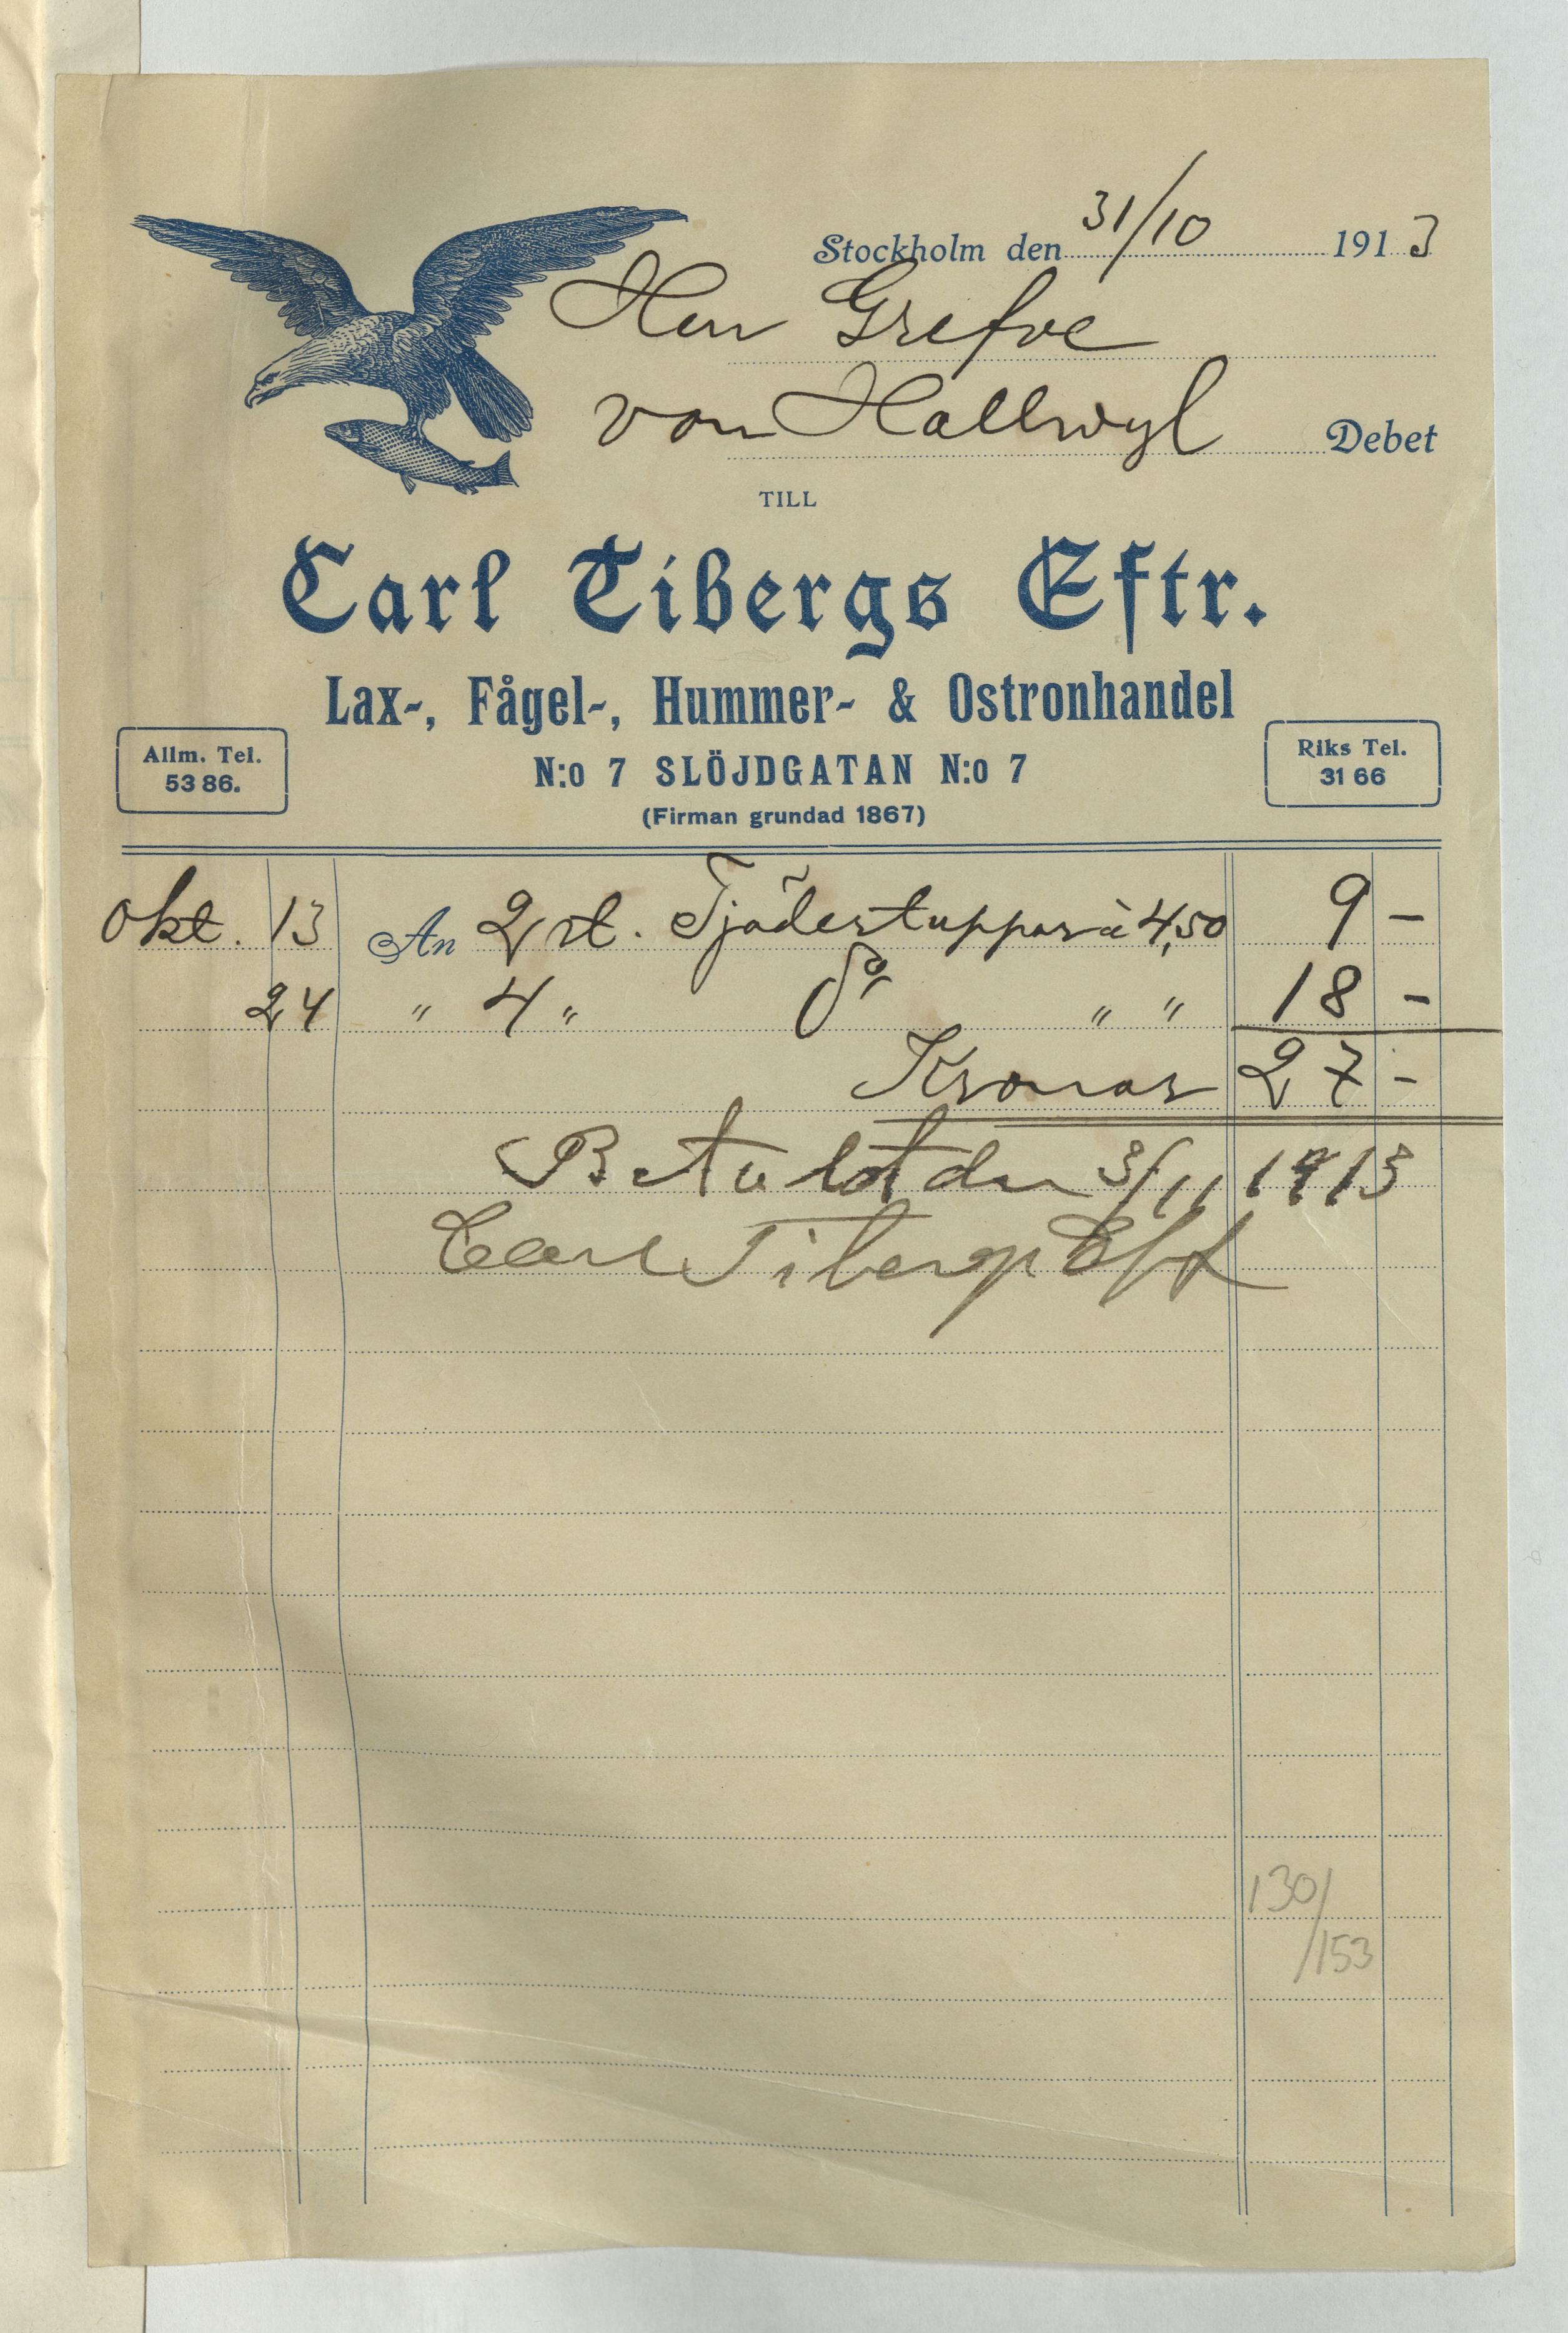 Stockholm den 31/10 1913
Herr Grefve
von Hallwyl Debet
TILL
Carl Tibergs Eftr.
Lax-, Fågel-, Hummer- & Ostronhandel
Allm. Tel.
53 86.
N:o 7 SLÖJDGATAN N:o 7
Riks Tel.
31 66
(Firman grundad 1867)
Okt. 13 An 2 st. Tjäderstuppar à 4,50 9 -
24 " 4 " Do " " 18 -
Kronor 27 -
Betalat den 3/11 1913
Carl Tibergs Eftr
130/
/153